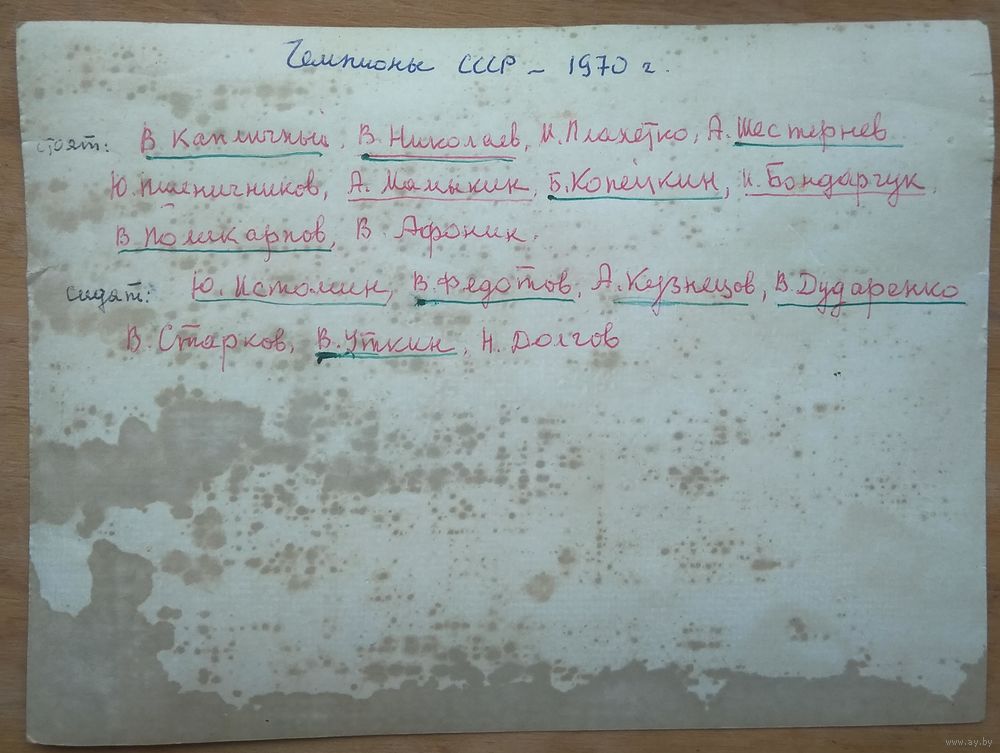 Чемпионы СССР – 1970 г.
стоят: В Капличный, В. Николаев, И. Плахетко, А. Шестернев
Ю. Пшеничников, А. Мамыкин, Б. Копейкин, И. Бондарчук.
В. Поликарпов, В. Афонин.
сидят: Ю. Истомин, В. Федотов, А. Кузнецов, В. Дударенко
В. Старков, В. Уткин, Н. Долгов
www.ay.by